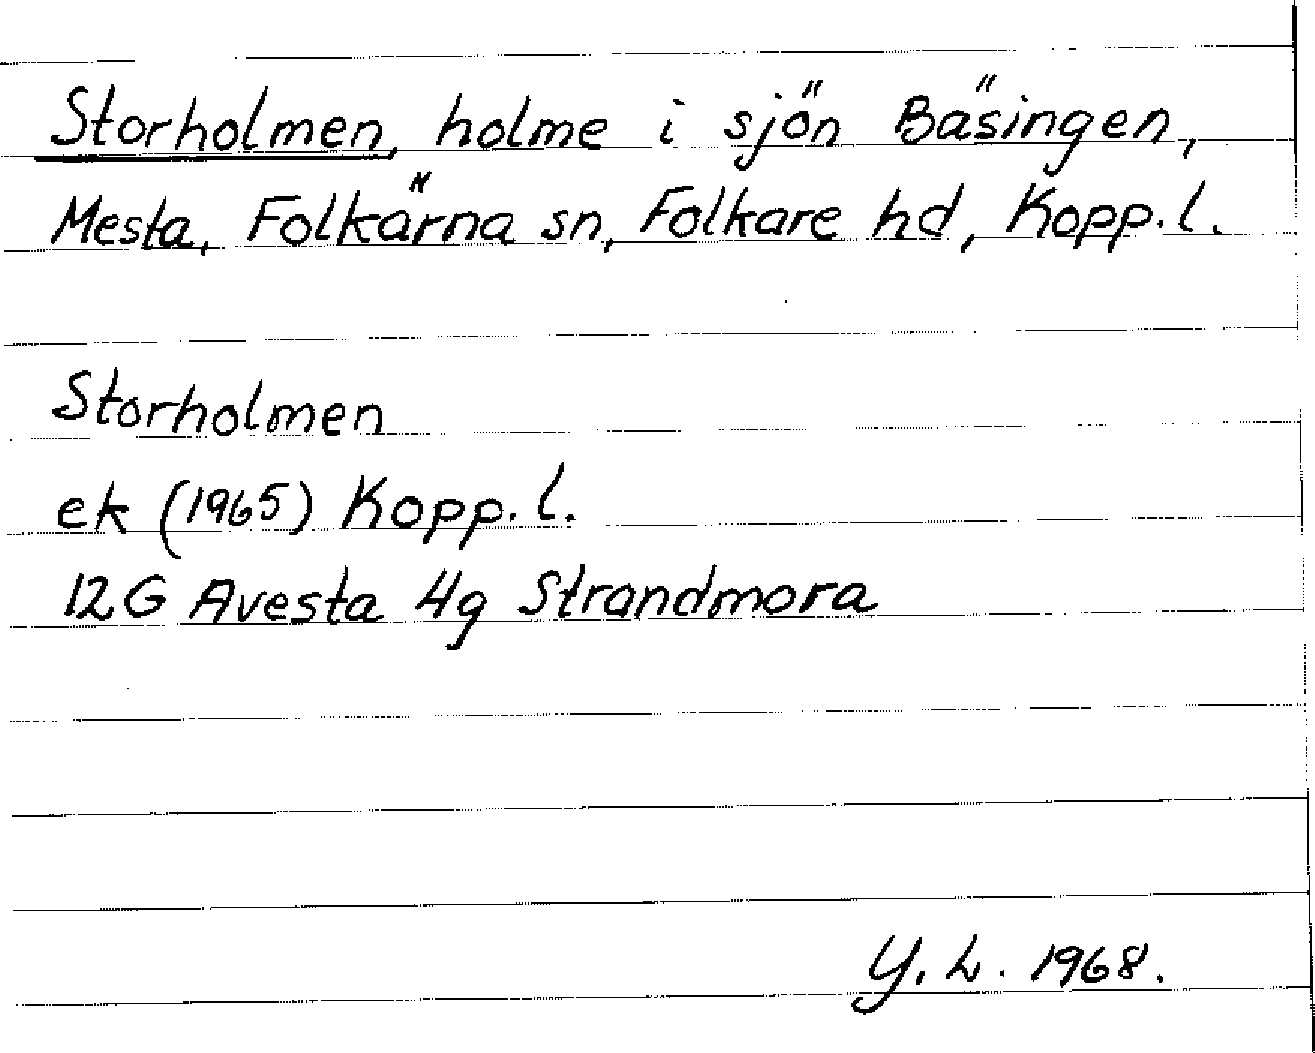 Storholmen, holme i sjön Bäsingen,
Mesta, Folkärna sn, Folkare hd, Kopp. l.
Storholmen
ek (1965) Kopp. l.
12G Avesta 4g Strandmora
Y. L. 1968.